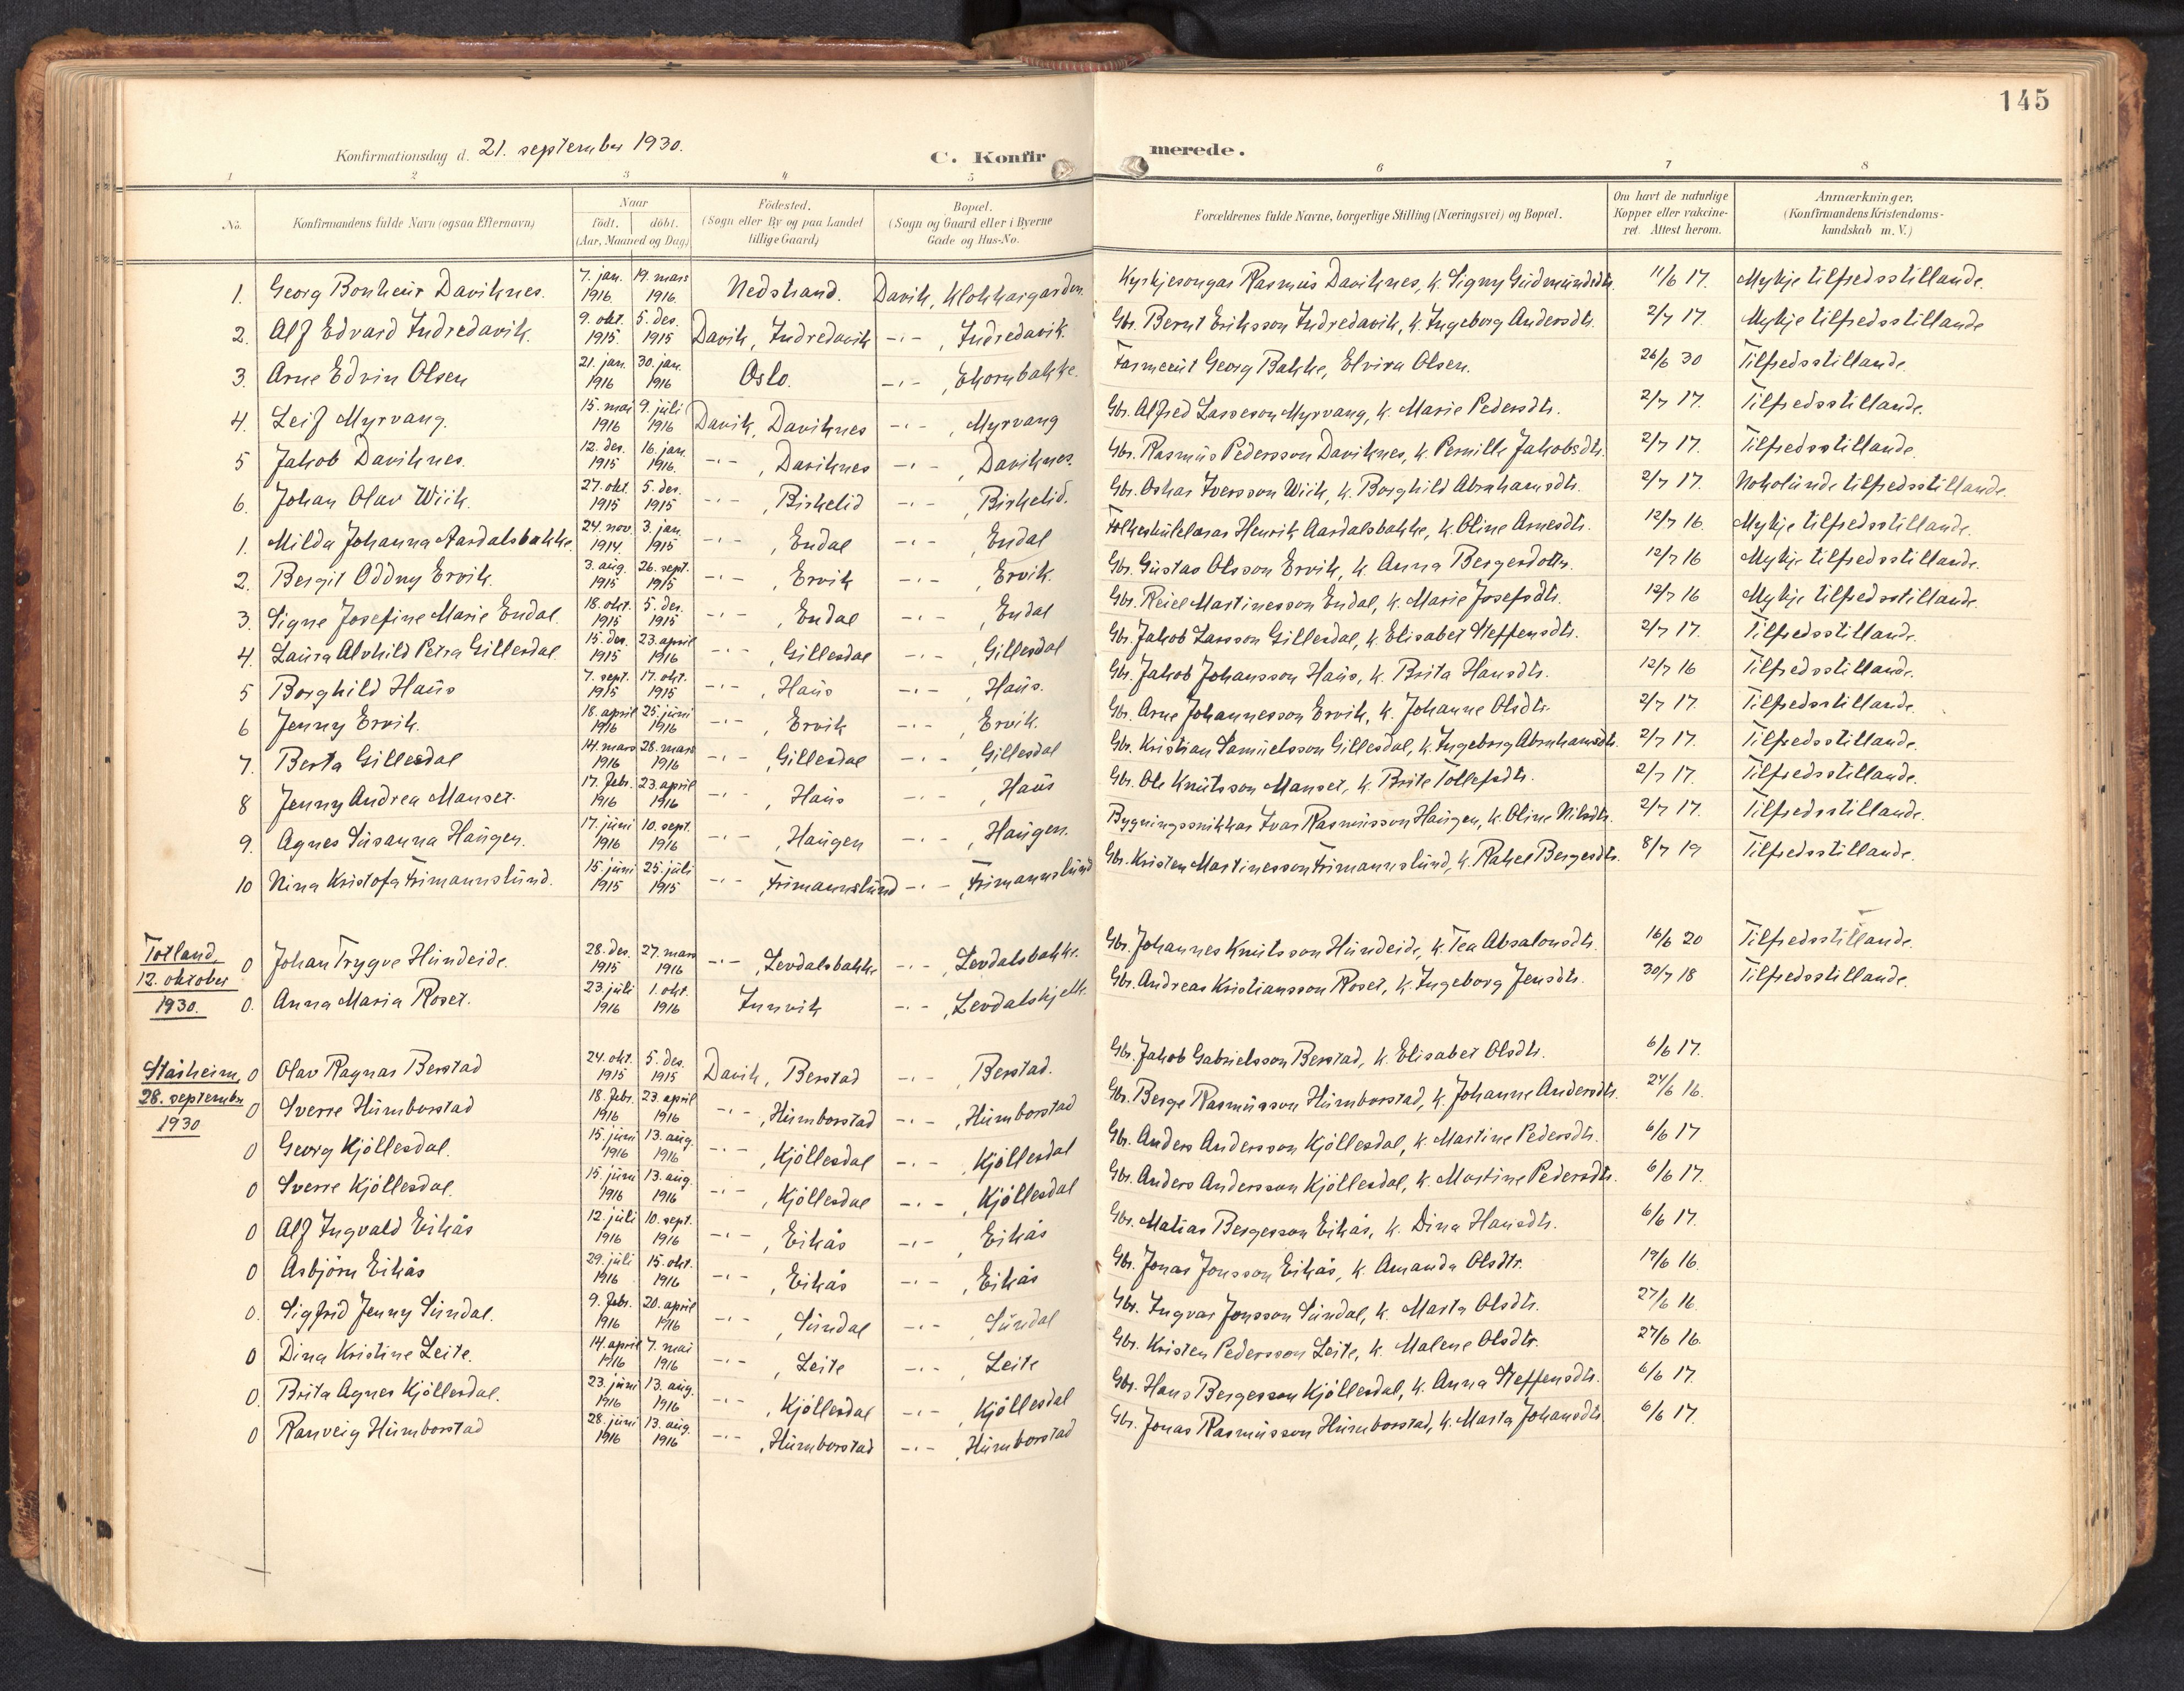 145
Konfirmationsdag d. 21. september 1930.
C. Konfirmerede.
1 2 3 4 5 6 7 8
No. Konfirmandens fulde Navn (ogsaa Efternavn) Naar født. døbt. (Aar, Maaned og Dag) Fødested. (Sogn eller By og paa Landet tillige Gaard) Bopæl. (Sogn og Gaard eller i Byerne Gade og Hus-No. Forældrenes fulde Navne, borgerlige Stilling (Næringsvei) og Bopæl. Om havt de naturlige Kopper eller vakcineret. Attest herom. Anmærkninger. (Konfirmandens Kristendomskundskab m. V.)
1. Georg Bonheur Daviknes. 7. jan. 1916. 19. mars 1916. Nedstrand. Davik, Klokkargarden. Kyrkjesongar Rasmus Daviknes, k. Signy Gudmundsdtr. 11/6 17. Mykje tilfredsstillande.
2. Alf Edvard Indredavik. 9. okt. 1915. 5. des. 1915 Davik, Indredavik -.- , Indredavik. Gbr. Bernt Eriksson Indredavik, k. Ingeborg Andersdtr. 2/7 17. Mykje tilfredsstillande
3. Arne Edvin Olsen 21. jan. 1916 30. jan. 1916 Oslo. -.- , Ekornbakke. Farmeeut Georg Bakke, Elvira Olsen. 26/6 30 Tilfredsstillande.
4. Leif Myrvang. 15. mai 1916 9. juli 1916 Davik, Daviknes -.- , Myrvang Gbr. Alfred Lasseson Myrvang, k. Marie Pedersdtr. 2/7 17. Tilfredsstillande.
5 Jakob Daviknes. 12. des. 1915 16. jan. 1916. -.- , Daviknes -.- , Daviknes. Gbr. Rasmus Pedersson Daviknes, k. Pernille Jakobsdtr. 2/7 17. Tilfredsstillande.
6. Johan Olav Wiik. 27. okt. 1915 5. des. 1915 -.- , Birkelid -.- , Birkelid. Gbr. Oskar Iversson Wiik, k. Borghild Abrahamsdtr. 2/7 17. Nokolunde tilfredsstillande.
1. Milda Johanna Aardalsbakke. 24. nov. 1914. 3. jan. 1915 -.- , Endal -.- , Endal Folkeskulelærar Henrik Aardalsbakke, k. Oline Arnesdtr. 12/7 16. Mykje tilfredsstillande.
2. Bergit Oddny Ervik. 3. aug. 1915 26. sept. 1915 -.- , Ervik -.- , Ervik. Gbr. Gustav Olsson Ervik, k. Anna Bergesdottr. 12/7 16 Mykje tilfredsstillande.
3. Signe Josefine Marie Endal. 18. okt. 1915 5. des. 1915 -.- , Endal -.- , Endal Gbr. Reiel Martinesson Endal, k. Marie Josefsdtr. 12/7 16 Mykje tilfredsstillande.
4. Laura Alvhild Petra Gillesdal. 15. des. 1915 23. april 1916 -.- , Gillesdal -.- , Gillesdal Gbr. Jakob Larsson Gillesdal, k. Elisabet Steffensdtr. 2/7 17. Tilfredsstillande.
5 Borghild Haus 7. sept. 1915 17. okt. 1915 -.- , Haus -.- , Haus. Gbr. Jakob Johansson Haus, k. Brita Hansdtr. 12/7 16 Tilfredsstillande.
6 Jenny Ervik. 18. april 1916 25. juni 1916 -.- , Ervik -.- , Ervik. Gbr. Arne Johannesson Ervik, k. Johanne Olsdtr. 2/7 17. Tilfredsstillande.
7. Berta Gillesdal 14. mars 1916 28. mars 1916 -.- , Gillesdal -.- , Gillesdal Gbr. Kristian Samuelsson Gillesdal, k. Ingeborg Abrahamsdtr. 2/7 17. Tilfredsstillande.
8 Jenny Andrea Manset. 17. febr. 1916 23. april 1916 -.- , Haus -.- , Haus Gbr. Ole Knutsson Manset, k. Brite Tollefsdtr. 2/7 17. Tilfredsstillande.
9. Agnes Susanna Haugen. 17. juni 1916 10. sept. 1916 -.- , Haugen -.- , Haugen. Bygningssnikkar Ivar Rasmusson Haugen, k. Oline Nilsdtr. 2/7 17. Tilfredsstillande.
10 Nina Kristofa Frimannslund. 15. juni 1915 25. juli 1915 -.- , Frimannslund -.- , Frimannslund Gbr. Kristen Martinesson Frimannslund, k. Rakel Bergesdtr. 8/7 19 Tilfredsstillande.
Totland, 12. oktober 1930.
0 Johan Trygve Hundeide. 28. des. 1915 27. mars 1916 -.- , Levdalsbakke -.- , Levdalsbakke. Gbr. Johannes Knutsson Hundeide, k. Tea Absalonsdtr. 16/6 20 Tilfredsstillande.
0. Anna Maria Roset. 23. juli 1916 1. okt. 1916 Innvik -.- , Levdalskjelk. Gbr. Andreas Kristiansson Roset, k. Ingeborg Jensdtr. 30/7 18 Tilfredsstillande.
Stårheim, 28. september 1930
0 Olav Ragnar Berstad 24. okt. 1915 5. des. 1915 Davik, Berstad -.- , Berstad. Gbr. Jakob Gabrielsson Berstad, k. Elisabet Olsdtr. 6/6 17.
0 Sverre Humborstad 18. febr. 1916 23. april 1916 -.- , Humborstad -.- , Humborstad Gbr. Berge Rasmusson Humborstad, k. Johanne Andersdtr. 24/6 16.
0 Georg Kjøllesdal. 15. juni 1916 13. aug. 1916 -.- , Kjøllesdal -.- , Kjøllesdal Gbr. Anders Andersson Kjøllesdal, k. Martine Pedersdtr. 6/6 17
0 Sverre Kjøllesdal. 15. juni 1916 13. aug. 1916 -.- , Kjøllesdal -.- , Kjøllesdal Gbr. Anders Andersson Kjøllesdal, k. Martine Pedersdtr. 6/6 17.
0 Alf Ingvald Eikås 12. juli 1916 10. sept. 1916 -.- , Eikås -.- , Eikås Gbr. Matias Bergesson Eikås, k. Dina Hansdtr. 6/6 17.
0 Asbjørn Eikås 29. juli 1916 15. okt. 1916 -.- , Eikås -.- , Eikås Gbr. Jonas Jonsson Eikås, k. Amanda Olsdtr. 19/6 16.
0. Sigfrid Jenny Sundal. 9. febr. 1916 20. april 1916 -.- , Sundal -.- , Sundal Gbr. Ingvar Jonsson Sundal, k. Marta Olsdtr. 27/6 16.
0 Dina Kristine Leite. 14. april 1916 7. mai 1916 -.- , Leite -.- , Leite Gbr. Kristen Pedersson Leite, k. Malene Olsdtr. 27/6 16.
0. Brita Agnes Kjøllesdal. 23. juni 1916 13. aug. 1916 -.- , Kjøllesdal -.- , Kjøllesdal Gbr. Hans Bergesson Kjøllesdal, k. Anna Steffensdtr. 6/6 17.
0 Ranveig Humborstad 28. juni 1916 13. aug. 1916 -.- , Humborstad -.- , Humborstad Gbr. Jonas Rasmusson Humborstad, k. Marta Johansdtr. 6/6 17.